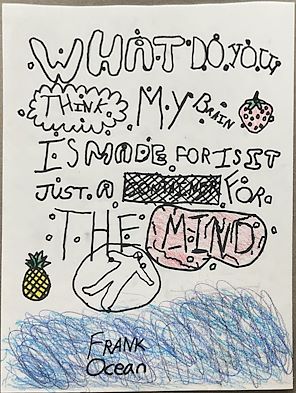 WHAT DO YOU
THINK MY BRAIN
IS MADE FOR IS IT
JUST A CONTAINER FOR
THE MIND
FRANK
Ocean